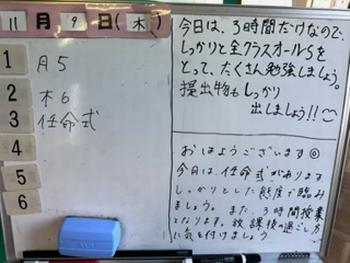 11月9日(木)
1 月5
2 木6
3 任命式
4
5
6
今日は、3時間だけなので、
しっかりと全クラスオールSを
とって、たくさん勉強しましょう。
提出物もしっかり
出しましょう!!
おはようございます
今日は任命式があります
しっかりとした態度で臨み
ましょう。また、3時間授業
となります。放課後の過ごし方
に気を付けましょう